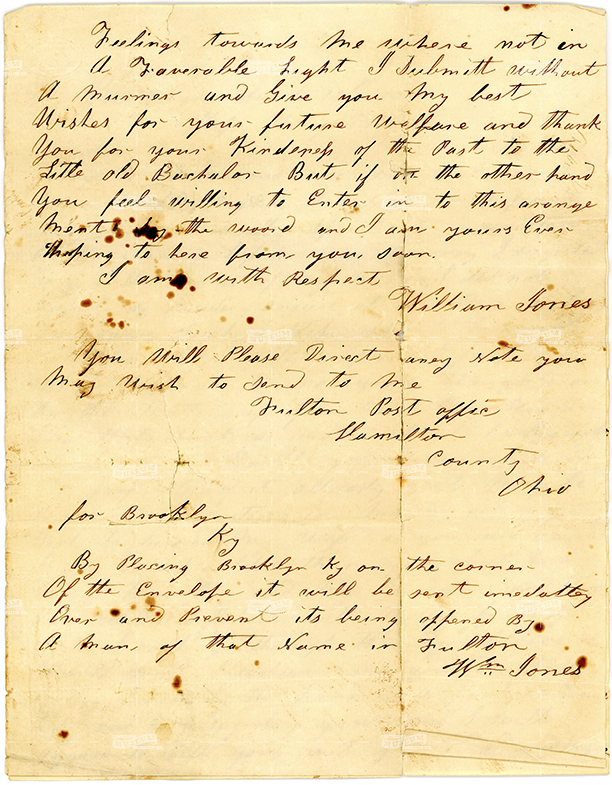 Feelings towards me where not in
A Faverable Light I Submitt without
A murmer and Give you My best
Wishes for your future Welfare and thank
You for your Kindeness of the Past to the
Little old Bachalor But if on the other hand
You feel willing to Enter in to this arange
ment the woord and I am yours Ever
hoping to here from you soon.
I am with Respect
William Jones
You Will Please Direct aney Note you
May Wish to send to Me
Fulton Post offic
Hamilton
County
Ohio
for Brooklyn
Ky
By Placing Brooklyn Ky on the corner
Of the Envelope it will be sent imediatley
Over and Prevent its being oppened By
A man of that Name in Fulton
Wm Jones